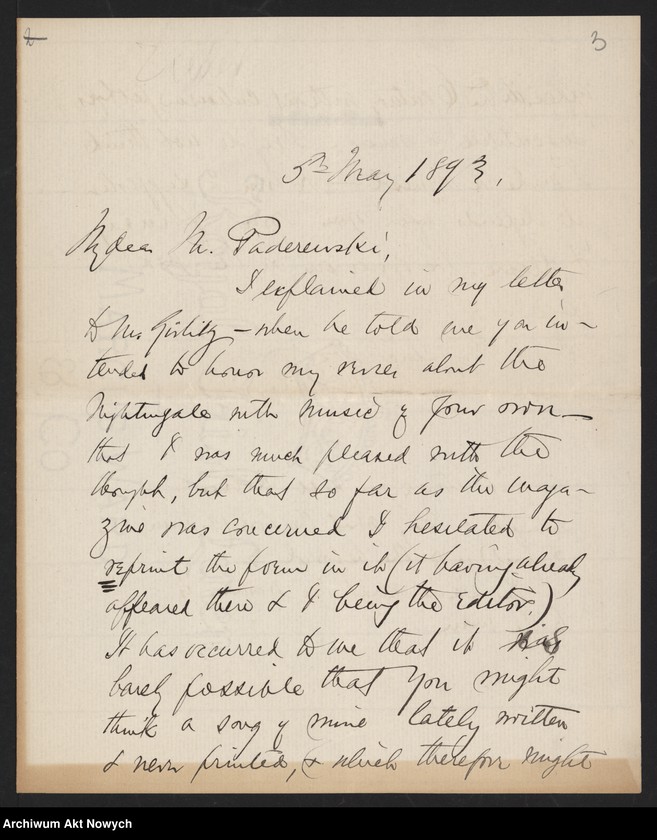 2
3
5th May 1893.
My dear Mr. Paderewski,
I explained in my letter
to Mr Görlitz – when he told me you in-
tended to honor my verses about the
Nightingale with music of your own –
that I was much pleased with the
thought, but that so far as the maga-
zine was concerned I hesitated to
reprint the poem in it (it having already
appeared there & I being the Editor.)
It has occurred to me that it was
barely possible that you might
think a song of mine lately written
& never printed, (& which therefore might
Archiwum Akt Nowych